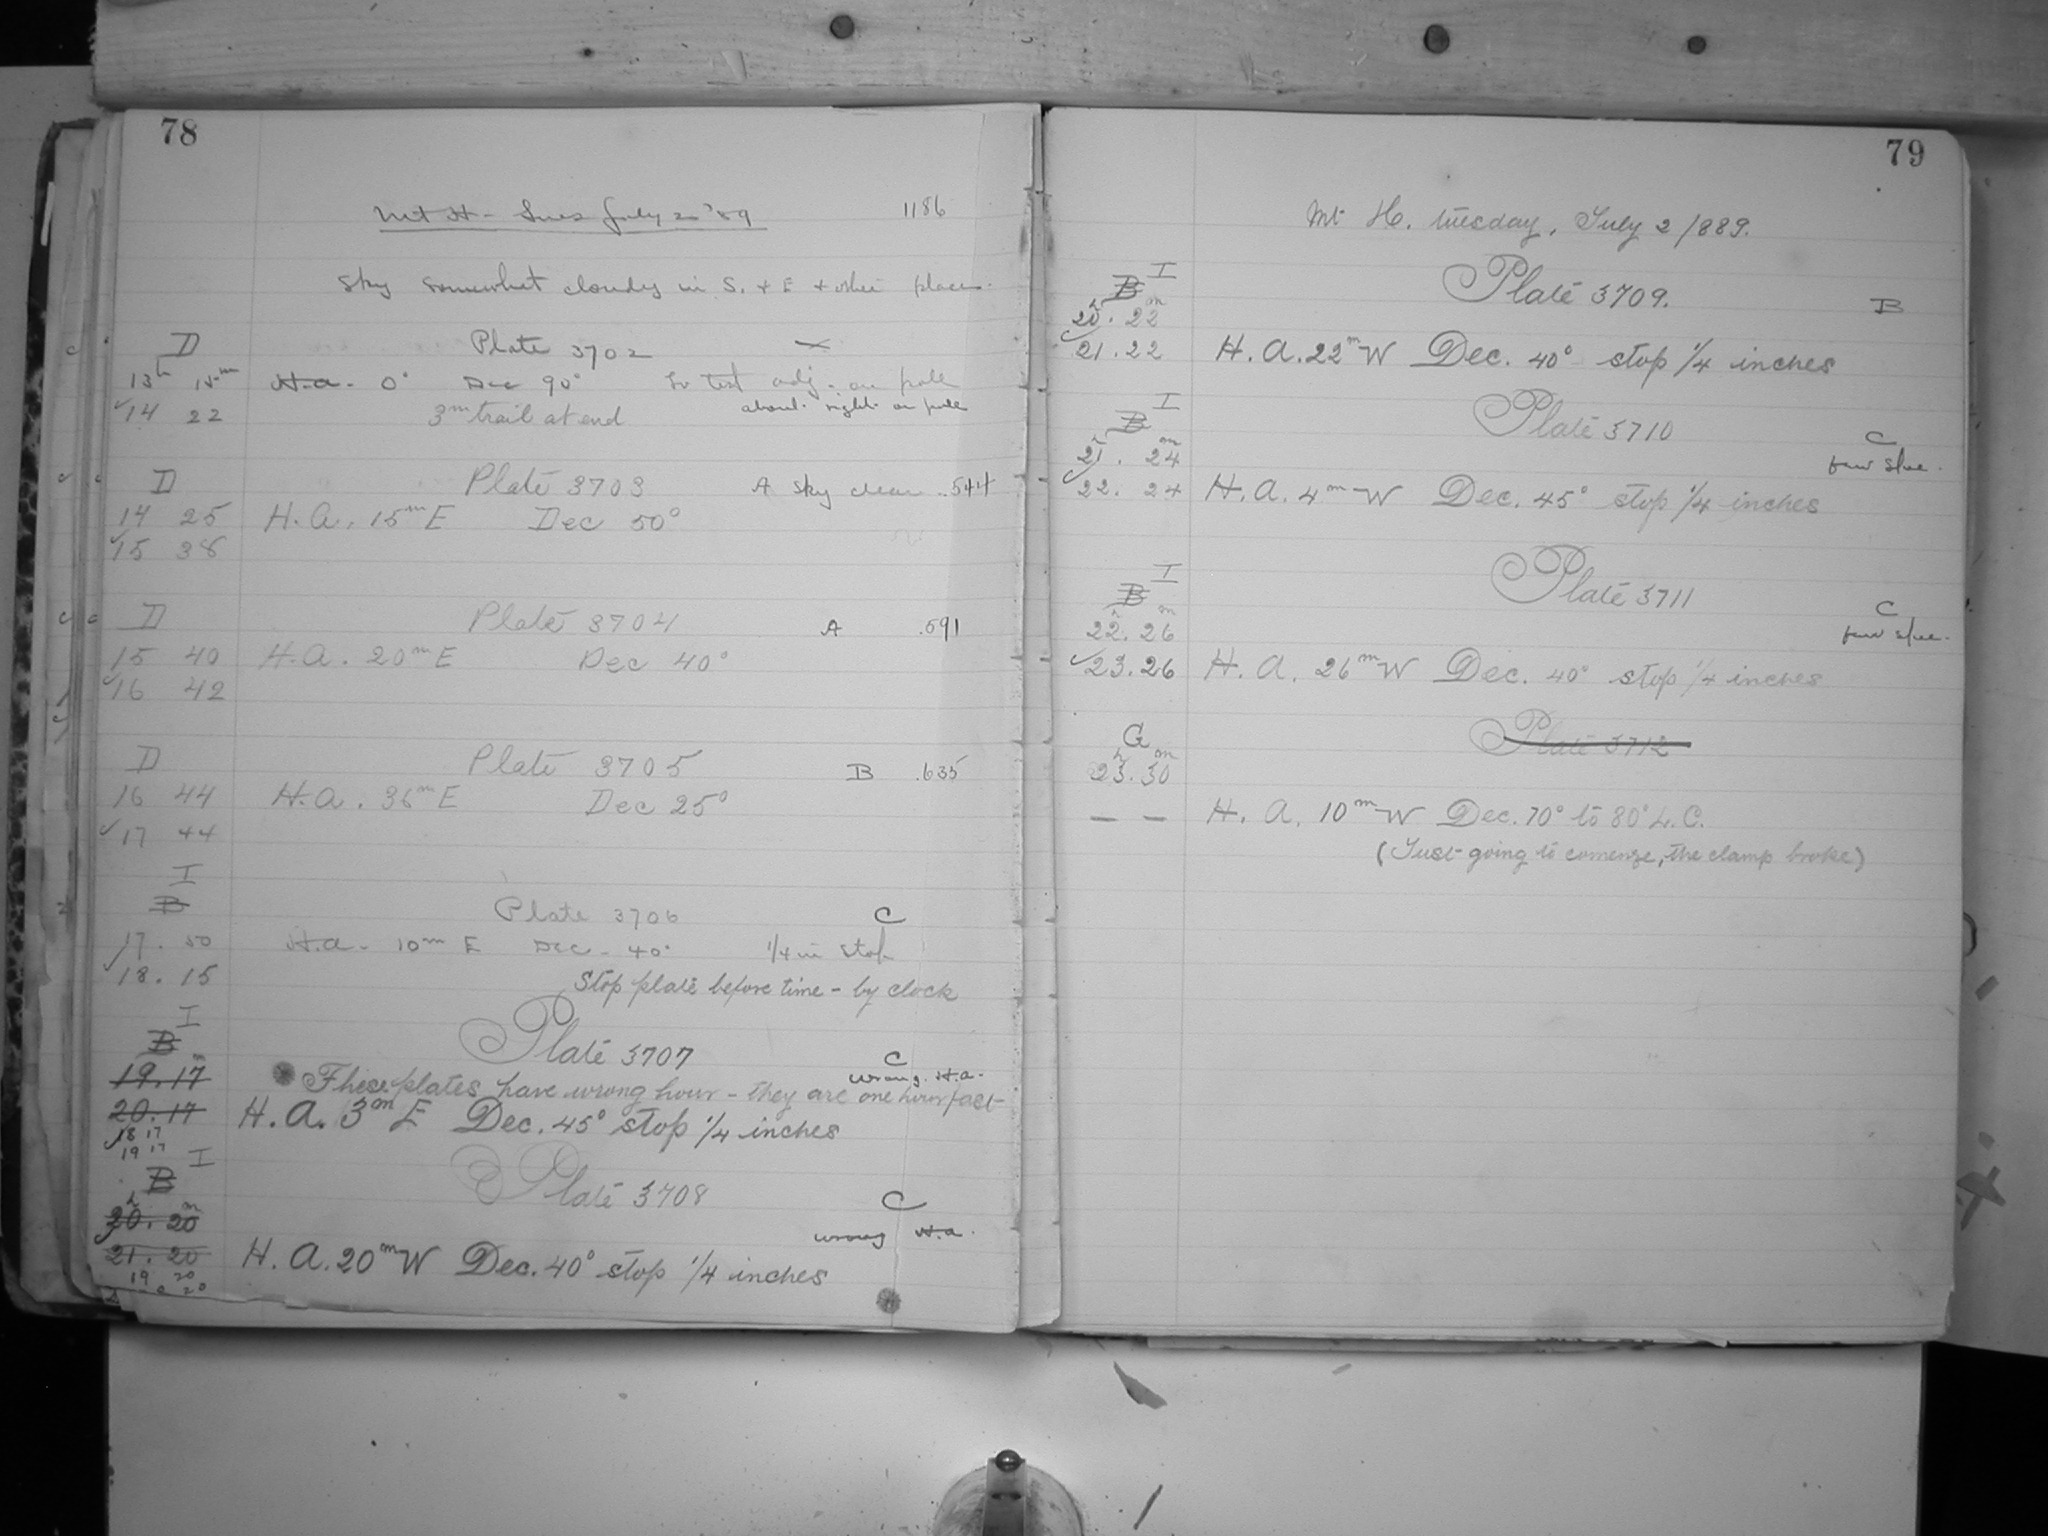 78
Mt H - Tues July 2 '89 1186
Sky somewhat cloudy in S. + E + other places.
D Plate 3702
13h 15m H.a. 0° Dec 90° To test adj. on pole
14 22 3m trail at end about right on pole
D Plate 3703 A Sky clear .544
14 25 H.A. 15m E Dec 50°
15 38
D Plate 3704 A .591
15 40 H.A. 20m E Dec 40°
16 42
D Plate 3705 B .635
16 44 H.A. 36m E Dec 25°
17 44
I
B Plate 3706 C
17. 50 H.a. 10m E Dec - 40° 1/4 in stop
18. 15 Stop plate before time - by clock
I
B Plate 3707 C
19. 17m wrong H.a.
These plates have wrong hour - they are one hour fast
20. 17 H.A. 3m E Dec. 45° stop 1/4 inches
18 17
19 17 I
B Plate 3708 C
20h. 20m wrong H.a.
21. 20 H.A. 20m W Dec. 40° stop 1/4 inches
19 20
20
79
Mt H. tuesday, July 2 1889.
I
B Plate 3709. B
20h. 22m
21. 22 H.A. 22m W Dec. 40° stop 1/4 inches
I
B Plate 3710 C
21h. 24m
22. 24 H.A. 4m W Dec. 45° stop 1/4 inches
I
B Plate 3711 C
22h. 26m
23. 26 H.A. 26m W Dec. 40° stop 1/4 inches
G Plate 3712
23h. 30m
— — H.A. 10m W Dec. 70° to 80° L.C.
(Just going to comenze, the clamp broke)